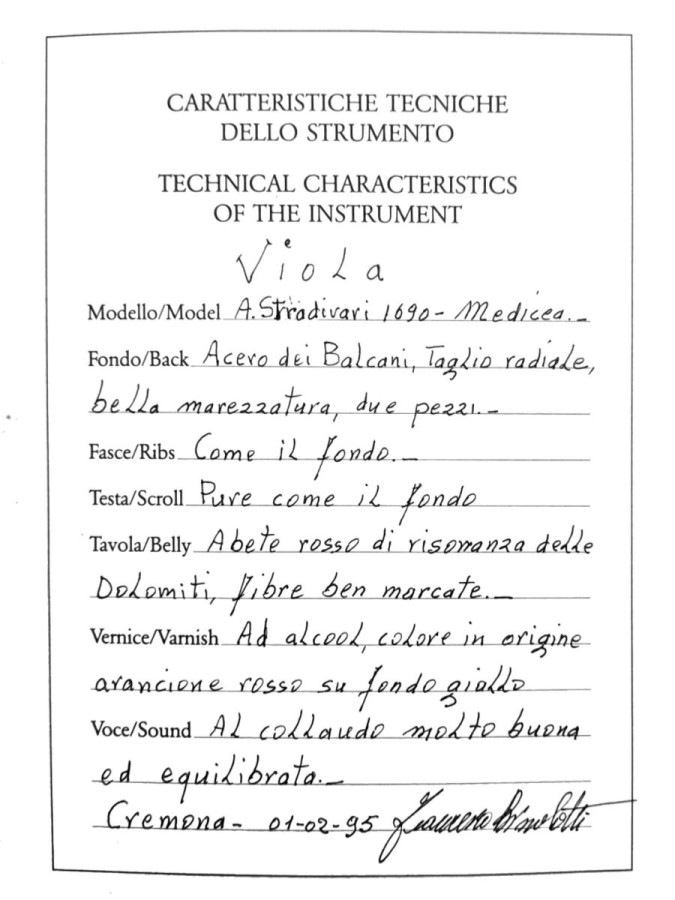 CARATTERISTICHE TECNICHE
DELLO STRUMENTO
TECHNICAL CHARACTERISTICS
OF THE INSTRUMENT
Viola
Modello/Model A. Stradivari 1690 - Medicea. -
Fondo/Back Acero dei Balcani, Taglio radiale,
bella marezzatura, due pezzi. -
Fasce/Ribs Come il fondo. -
Testa/Scroll Pure come il fondo
Tavola/Belly Abete rosso di risonanza delle
Dolomiti, fibre ben marcate. -
Vernice/Varnish Ad alcool, colore in origine
arancione rosso su fondo giallo
Voce/Sound Al collaudo molto buona
ed equilibrata. -
Cremona - 01-02-95